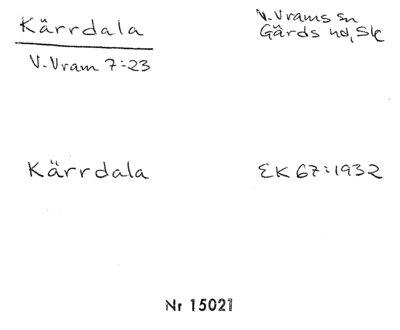 Kärrdala
V. Vrams sn
Gärds hd, Sk
V. Vram 7:23
Kärrdala
EK 67:1932
Nr 15021